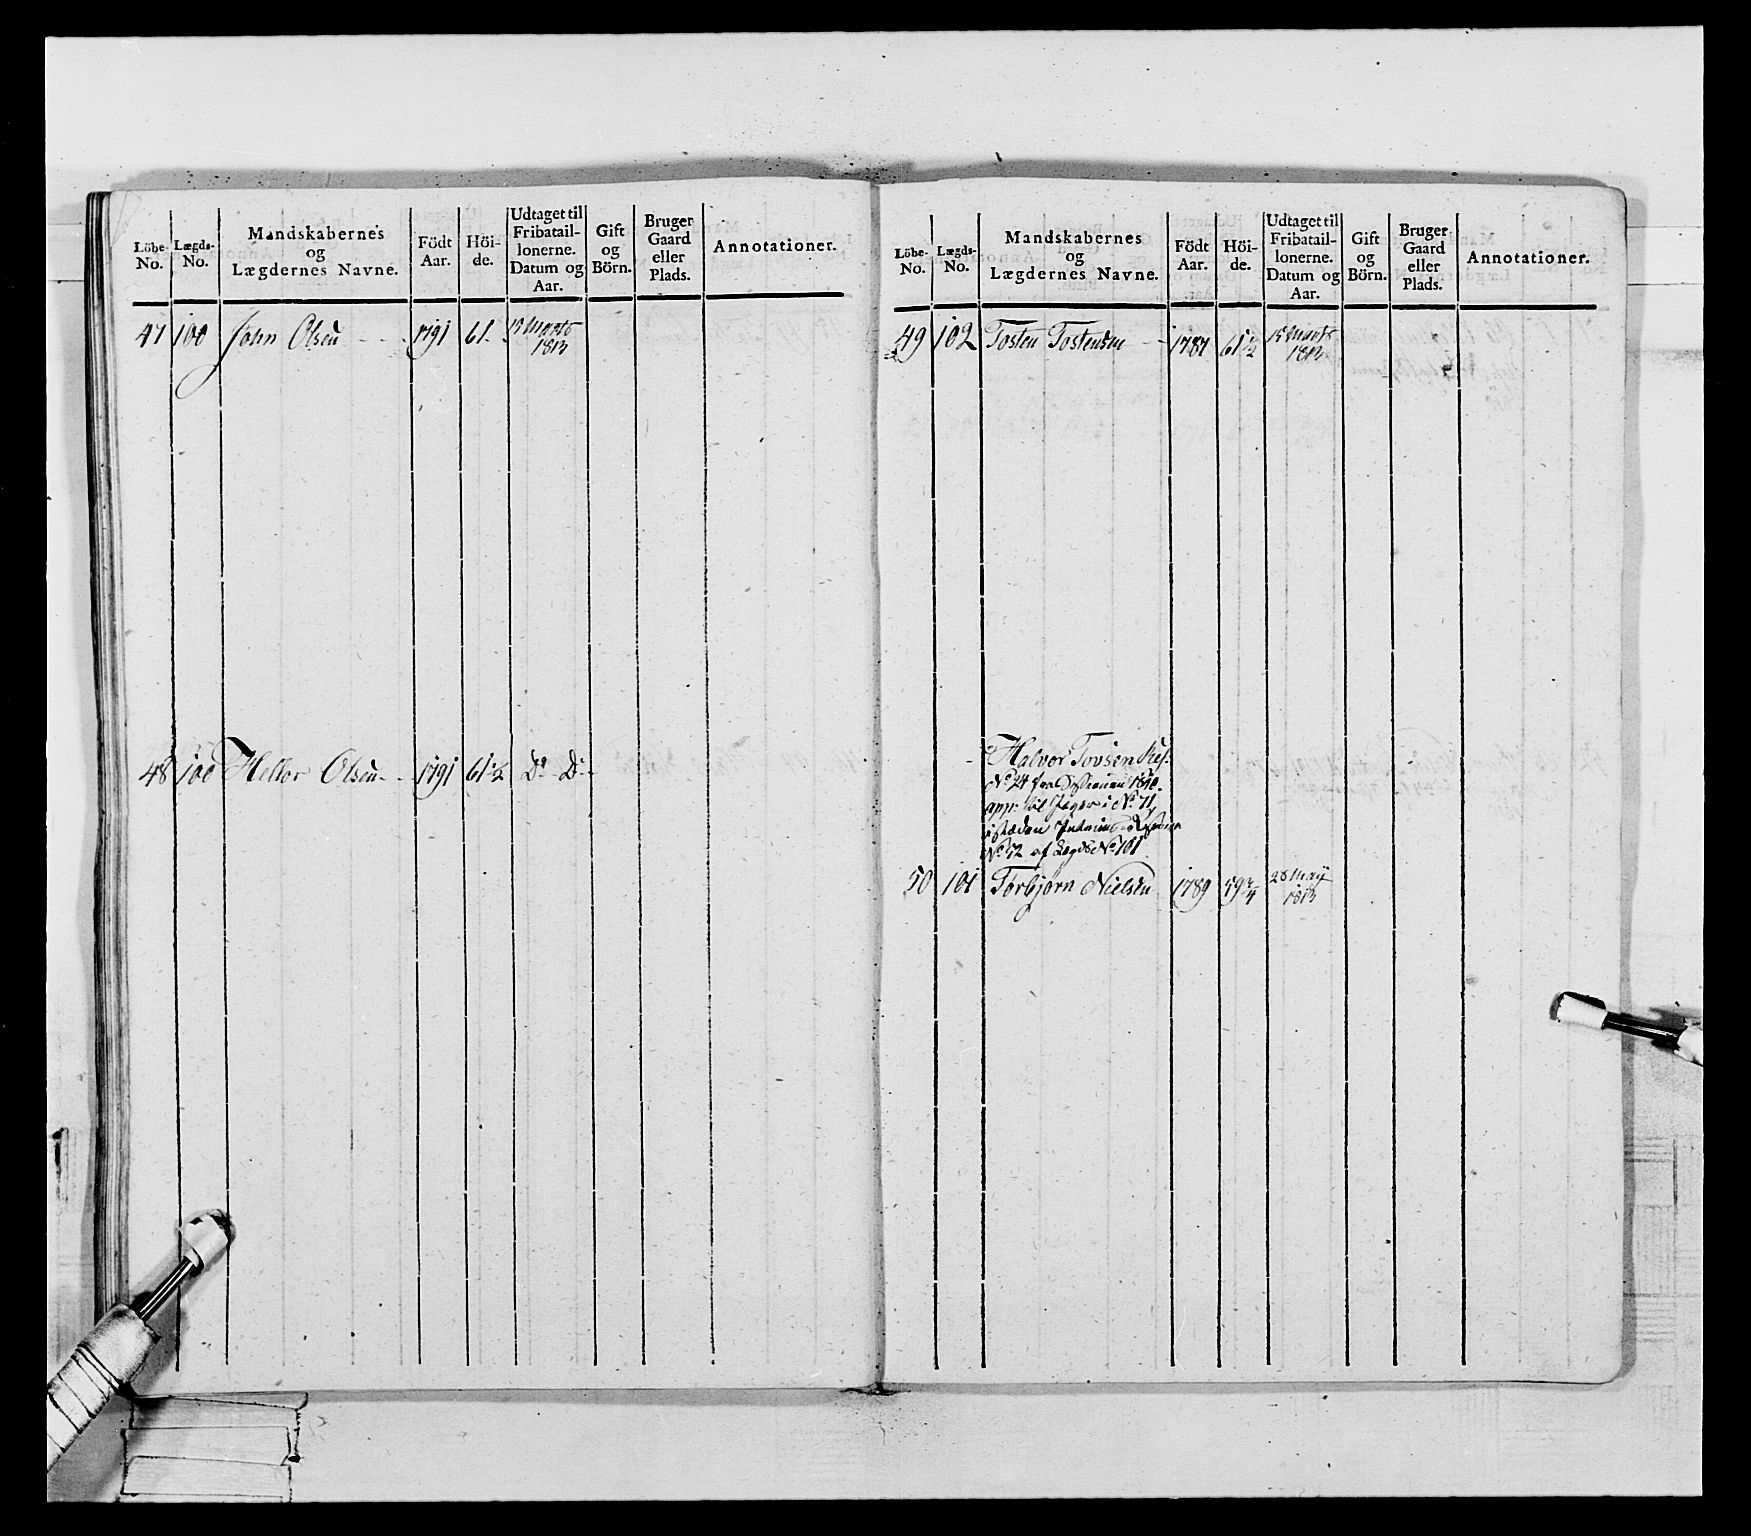 Löbe-No. Lægds-No. Mandskabernes og Lægdernes Navne. Födt Aar. Höi-de. Udtaget til Fribatail-lonerne. Datum og Aar. Gift og Börn. Bruger Gaard eller Plads. Annotationer.
47 100 John Olsen - - - 1791 61 - 15 Marts 1813
48 100 Hellor Olsen - - 1791 61 1/2 Do - Do -
Löbe-No. Lægds-No. Mandskabernes og Lægdernes Navne. Födt Aar. Höi-de. Udtaget til Fribatail-lonerne. Datum og Aar. Gift og Börn. Bruger Gaard eller Plads. Annotationer.
49 102 Tosten Tostensen - - 1787 61 1/2 15 Marts 1813
Halvor Tovsen
No 24 fra 1810.
app: til Jæger i No 71
istæden
No 52 af Lægds No 101
50 101 Torbjørn Nielsen 1789 59 3/4 28 May 1813